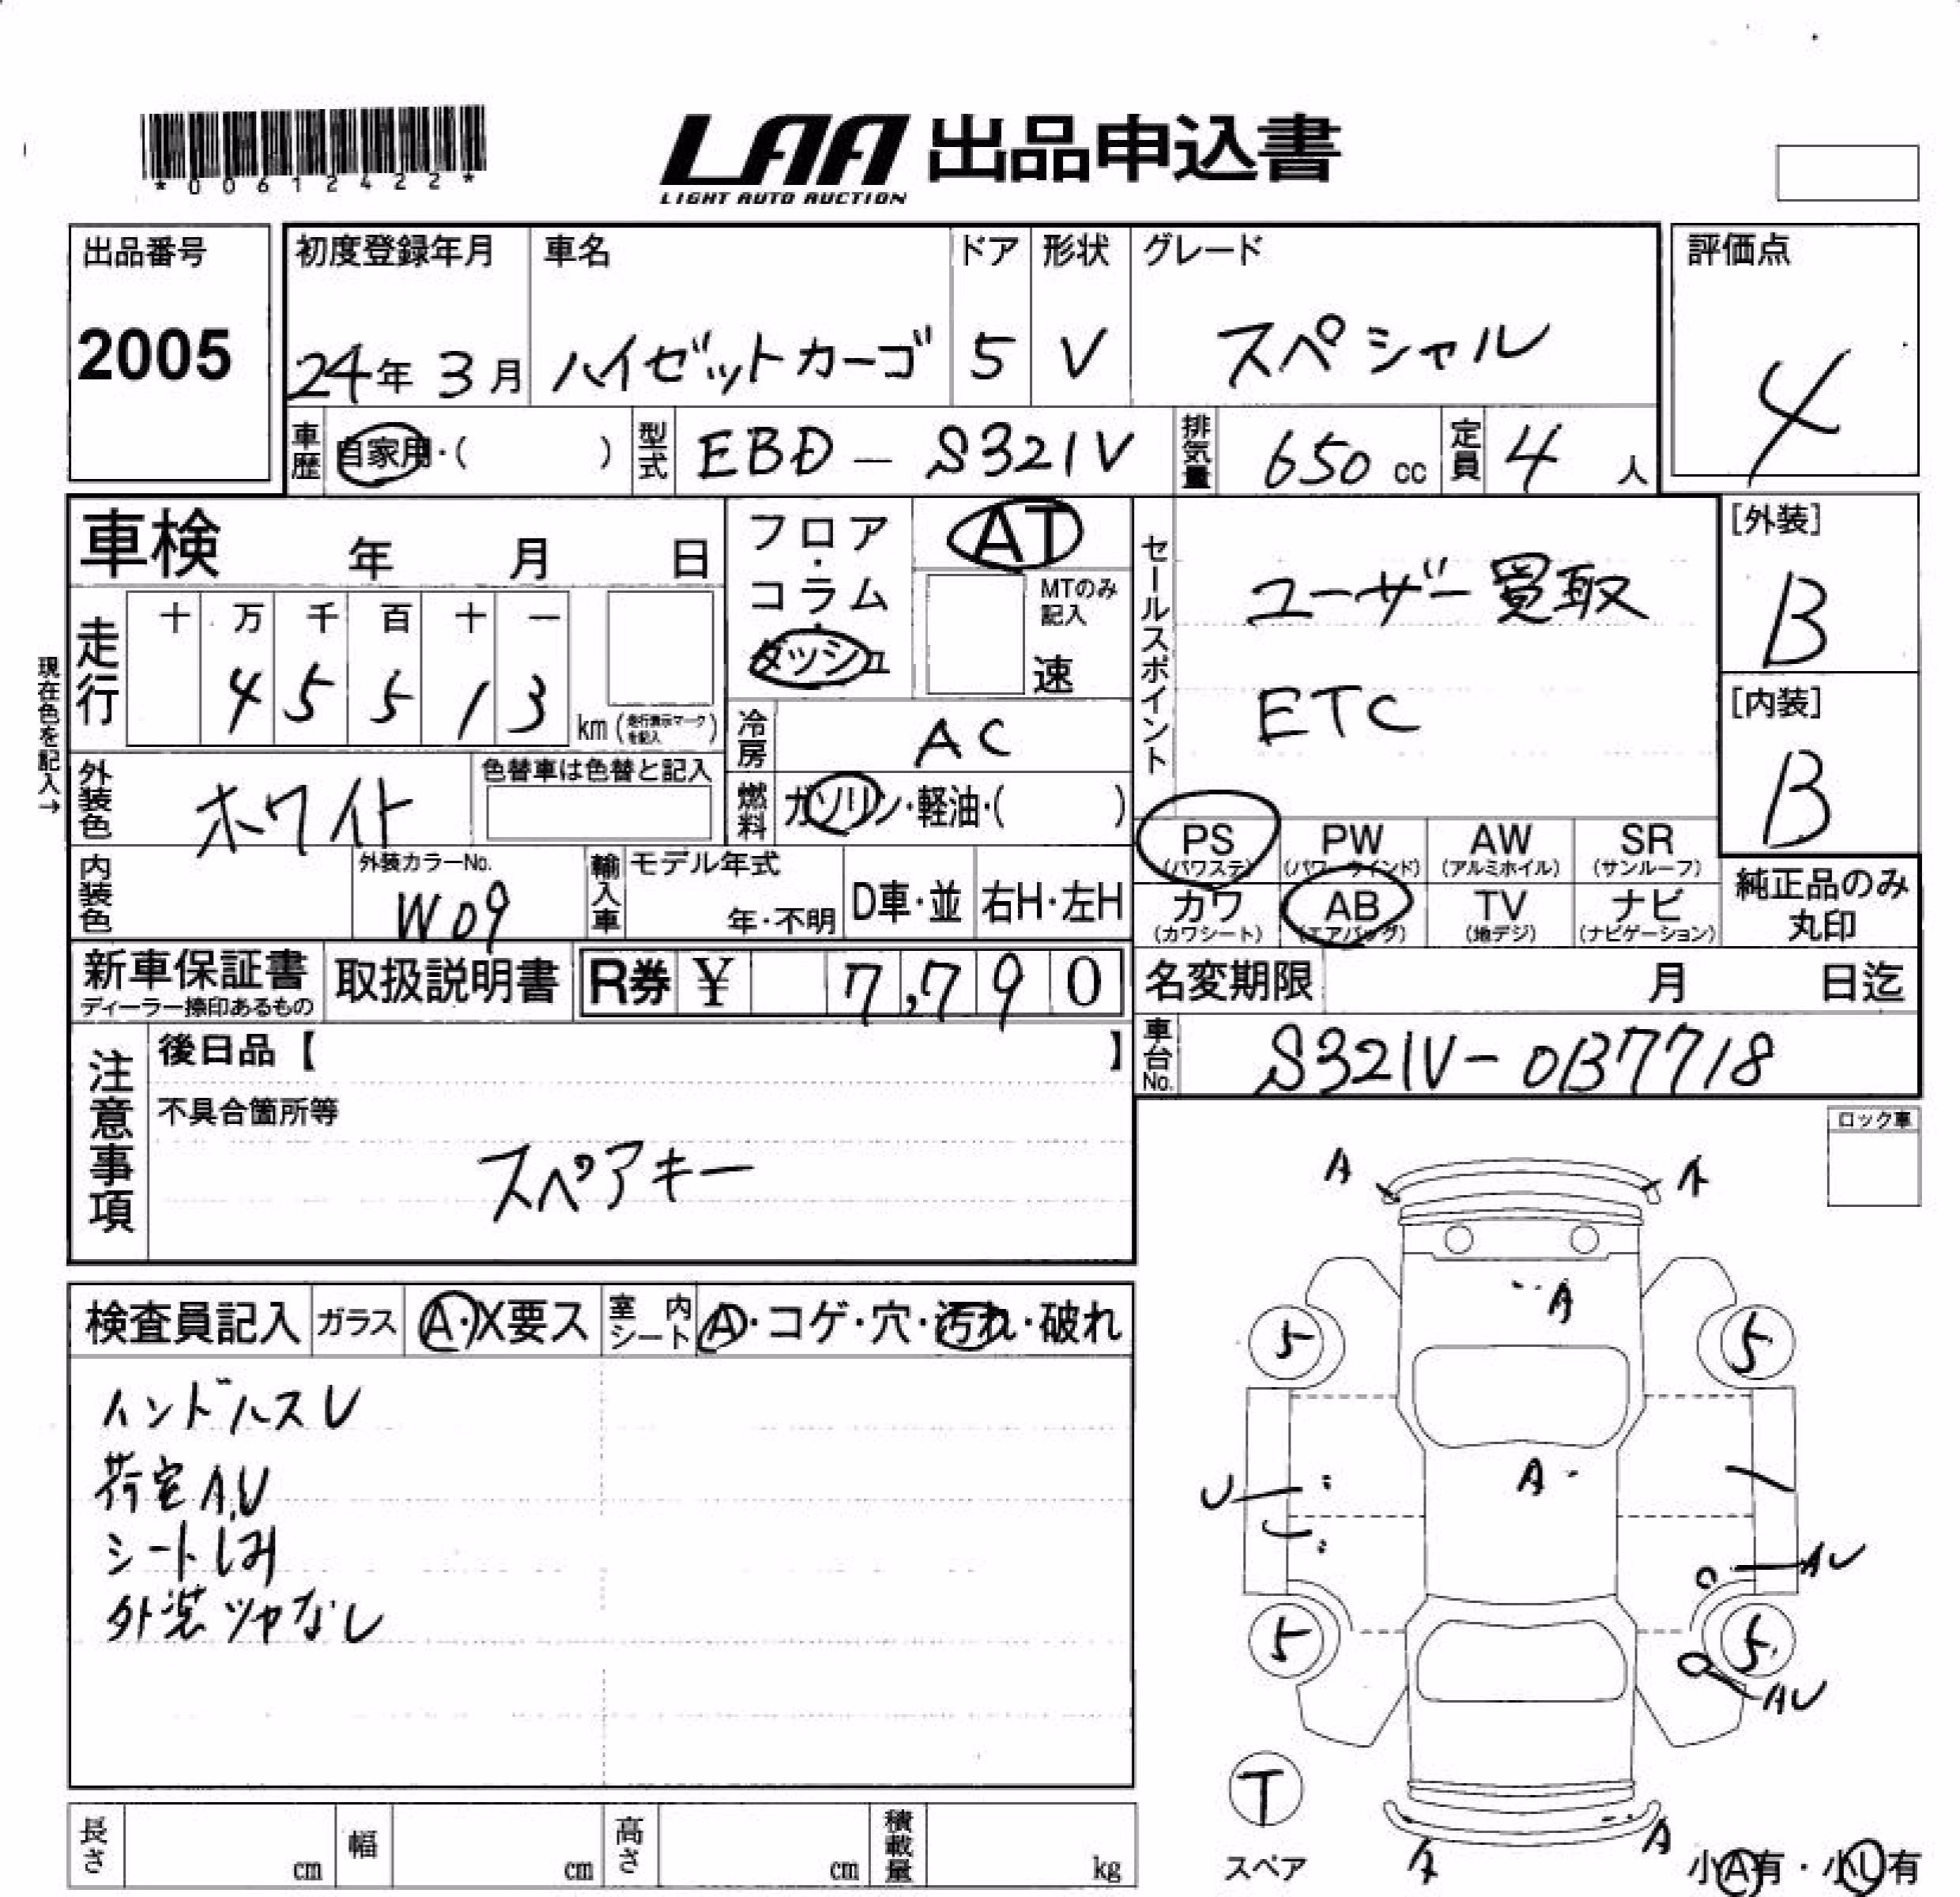 *00612422*
LAA 出品申込書
LIGHT AUTO AUCTION
出品番号 初度登録年月 車名 ドア 形状 グレード 評価点
2005 24年 3月 ハイゼットカーゴ 5 V スペシャル 4
車歴 自家用・( ) 型式 EBD - S321V 排気量 650 cc 定員 4 人
車検 年 月 日
フロア・コラム・ダッシュ
AT
MTのみ記入
速
セールスポイント
ユーザー買取
ETC
[外装]
B
[内装]
B
現在色を記入→
走行 十 万 千 百 十 一
4 5 5 1 3 km (走行表示マークを記入)
冷房 AC
外装色 ホワイト 色替車は色替と記入
燃料 ガソリン・軽油・( )
PS (パワステ) PW (パワーウインド) AW (アルミホイル) SR (サンルーフ)
カワ (カワシート) AB (エアバッグ) TV (地デジ) ナビ (ナビゲーション)
純正品のみ丸印
内装色 外装カラーNo. W09 輸入車 モデル年式 年・不明 D車・並 右H・左H
新車保証書 取扱説明書 R券 ¥ 7,790
ディーラー捺印あるもの
名変期限 月 日迄
車台No. S321V-0137718
注意事項
後日品【 】
不具合箇所等
スペアキー
ロック車
検査員記入 ガラス A・X要ス 室内シート A・コゲ・穴・汚れ・破れ
荷室A,U
シートしみ
外装ツヤなし
A A
A
5 5
A
U
AU
5 5
AU
T
スペア
A A
小A有・小U有
長さ cm 幅 cm 高さ cm 積載量 kg